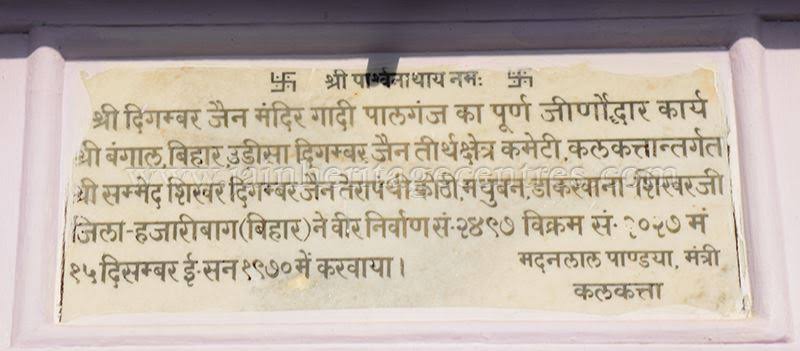 卐 श्री पार्श्वनाथाय नमः 卐
श्री दिगम्बर जैन मंदिर गादी पालगंज का पूर्ण जीर्णोद्धार कार्य
श्री बंगाल, बिहार, उडीसा दिगम्बर जैन तीर्थक्षेत्र कमेटी, कलकत्तान्तर्गत
श्री सम्मेद शिखर दिगम्बर जैन तेरापंथी कोठी, मधुबन, डाकखाना-शिखरजी
जिला-हजारीबाग (बिहार) ने वीर निर्वाण सं॰ २४९७ विक्रम सं॰ २०२७ मं
१५ दिसम्बर ई॰ सन १९७० में करवाया।
मदनलाल पाण्डया, मंत्री
कलकत्ता
www.jainheritagecentres.com